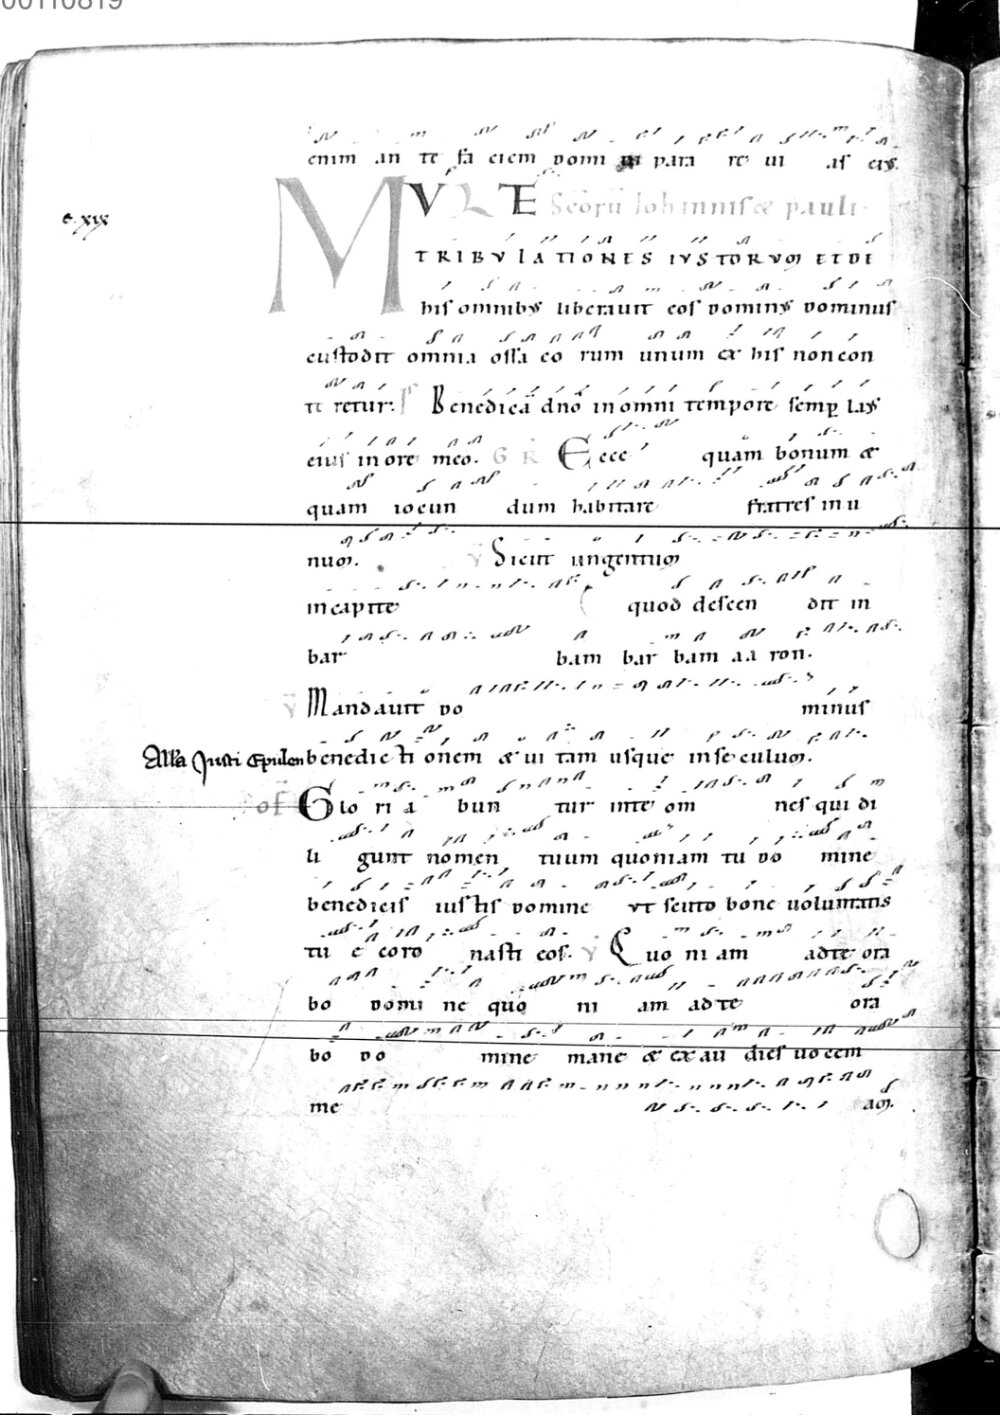 00110819
enim an te fa ciem domi ni para re ui as eiꝰ.
MVLTE Scorū Iohannis & pauli
c. xix
TRIBVLATIONES IVSTORVM ET DE
his omnibꝰ liberauit eos dominꝰ dominus
custodit omnia ossa eo rum unum ex his non con
te retur. Ps Benedicā dn̄o in omni tempore semp laꝰ
eius in ore meo. GR Ecce quam bonum &
quam iocun dum habitare fratres in u
num. V Sicut ungentum
in capite quod descen dit in
bar bam bar bam aa ron.
V Mandauit do minus
Alla Justi Epulen benedicti onem & ui tam usque in seculum.
OF Glo ri a bun tur inte om nes qui di
li gunt nomen tuum quoniam tu do mine
benedicis iustis domine ut scuto bone uoluntatis
tu e coro nasti eos. V Quo ni am ad te ora
bo domi ne quo ni am ad te ora
bo do mine mane & exau dies uocem
me am.